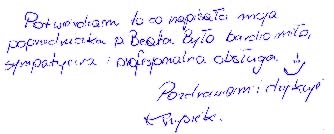 Potwierdzam to co napisała moja
poprzedniczka p. Beata. Było bardzo miło,
sympatyczna i profesjonalna obsługa.
Pozdrawiam i dziękuję